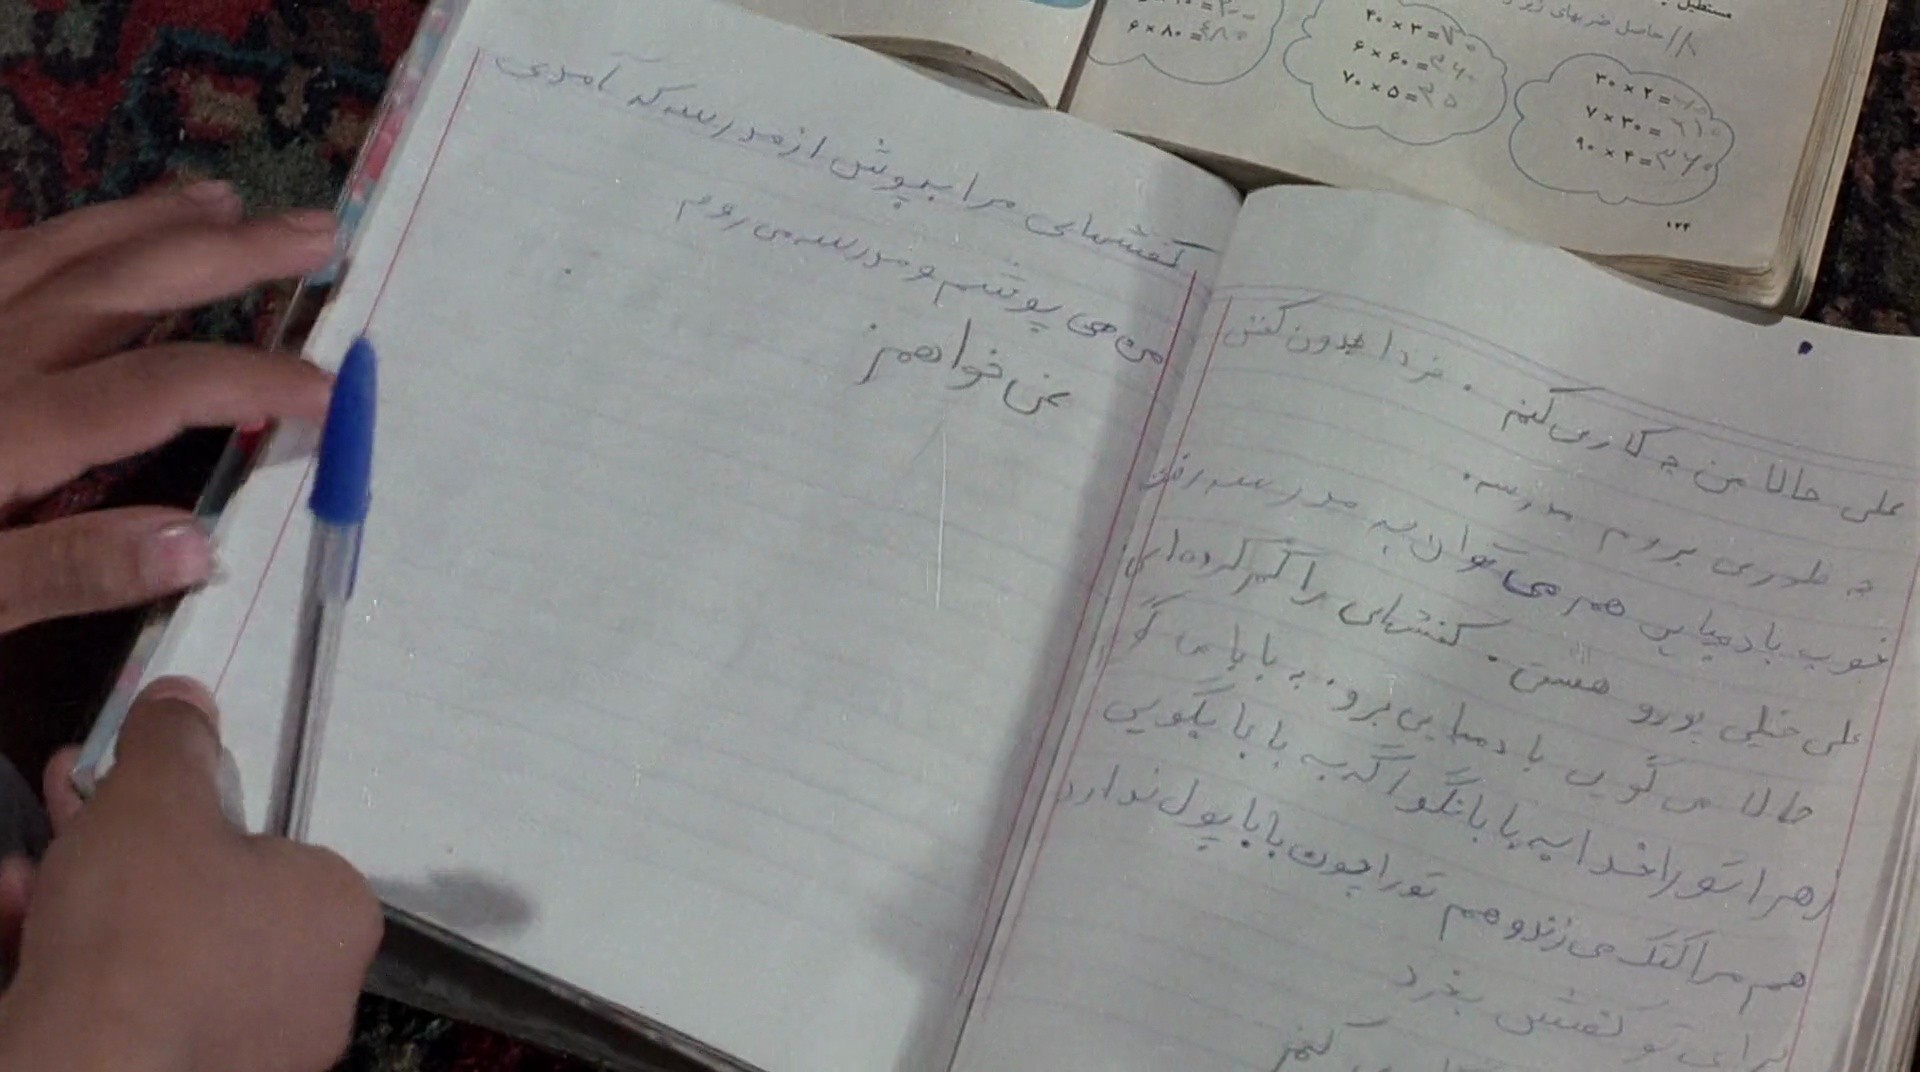 مستطیل
حاصل ضربهای زیر را
۶×۸۰=۴۸۰
۲۰×۳=۷۰
۶×۶۰=۳۶۰
۷۰×۵=۳۵
۳۰×۲=
۷×۳۰=۲۱۰
۹۰×۴=۳۶۰
۱۲۴
علی حالا من چه کاری کنم . فردا بدون کفش
چه طوری بروم مدرسه.
خوب با دمپایی هم می توان به مدرسه رفت
علی خیلی پورو هستی . کفشهایی را گم کرده ای
حالا می گویی با دمپایی برو. به بابا می گو
زهرا تو را خدا به بابا نگو اگر به بابا بگویی
هم مرا کتک می زند و هم تو را چون بابا پول ندارد
برای تو کفش بخرد
کنم
کفشهایی مرا بپوش از مدرسه که آمدی
من می پوشم و مدرسه می روم
نمی خواهم